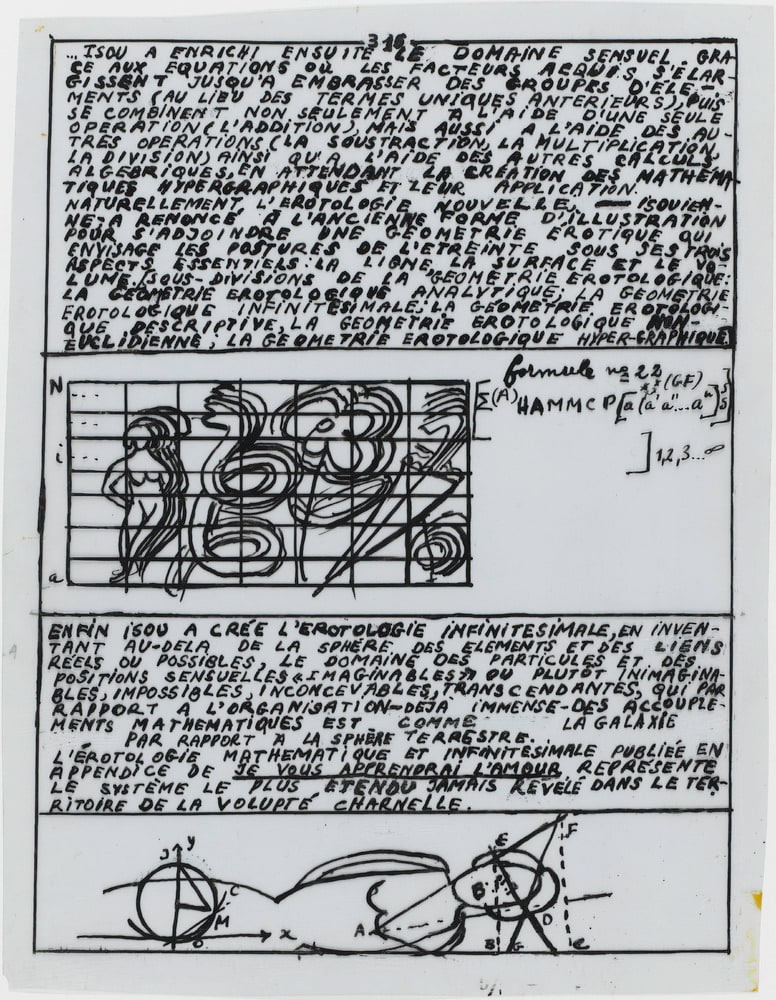 316
...ISOU A ENRICHI ENSUITE LE DOMAINE SENSUEL. GRA-
CE AUX EQUATIONS OU LES FACTEURS ACQUIS S'ELAR-
GISSENT JUSQU'A EMBRASSER DES GROUPES D'ELE-
MENTS (AU LIEU DES TERMES UNIQUES ANTERIEURS), PUIS
SE COMBINENT NON SEULEMENT A L'AIDE D'UNE SEULE
OPERATION (L'ADDITION), MAIS AUSSI A L'AIDE DES AU-
TRES OPERATIONS (LA SOUSTRACTION, LA MULTIPLICATION,
LA DIVISION) AINSI QU'A L'AIDE DES AUTRES CALCULS
ALGEBRIQUES, EN ATTENDANT LA CREATION DES MATHEMA-
TIQUES HYPERGRAPHIQUES ET LEUR APPLICATION.
NATURELLEMENT L'EROTOLOGIE NOUVELLE, — ISOUIEN-
NE, A RENONCE A L'ANCIENNE FORME D'ILLUSTRATION
POUR S'ADJOINDRE UNE GEOMETRIE EROTIQUE QUI
ENVISAGE LES POSTURES DE L'ETREINTE SOUS SES TROIS
ASPECTS ESSENTIELS: LA LIGNE, LA SURFACE ET LE VO-
LUME (SOUS-DIVISIONS DE LA GEOMETRIE EROTOLOGIQUE:
LA GEOMETRIE EROTOLOGIQUE ANALYTIQUE; LA GEOMETRIE
EROTOLOGIQUE INFINITESIMALE; LA GEOMETRIE EROTOLOGI-
QUE DESCRIPTIVE, LA GEOMETRIE EROTOLOGIQUE NON-
EUCLIDIENNE, LA GEOMETRIE EROTOLOGIQUE HYPER-GRAPHIQUE.
formule nº 22
N
Σ(A) HAMMCP [a (a' a''...aⁿ)
(GF)
i
] 1,2,3...∞
a
ENFIN ISOU A CRÉE L'EROTOLOGIE INFINITESIMALE, EN INVEN-
TANT AU-DELA DE LA SPHÈRE DES ELEMENTS ET DES LIENS
RÉELS OU POSSIBLES, LE DOMAINE DES PARTICULES ET DES
POSITIONS SENSUELLES «IMAGINABLES» OU PLUTÔT INIMAGINA-
BLES, IMPOSSIBLES, INCONCEVABLES, TRANSCENDANTES, QUI PAR
RAPPORT A L'ORGANISATION-DEJA IMMENSE-DES ACCOUPLE-
MENTS MATHEMATIQUES EST COMME LA GALAXIE
PAR RAPPORT A LA SPHÈRE TERRESTRE.
L'ÉROTOLOGIE MATHEMATIQUE ET INFINITESIMALE PUBLIÉE EN
APPENDICE DE JE VOUS APPRENDRAI L'AMOUR REPRÉSENTE
LE SYSTÈME LE PLUS ETENDU JAMAIS RÉVÉLÉ DANS LE TER-
RITOIRE DE LA VOLUPTÉ CHARNELLE.
J y
C
M
O x
A
E F
B'
D
B G C